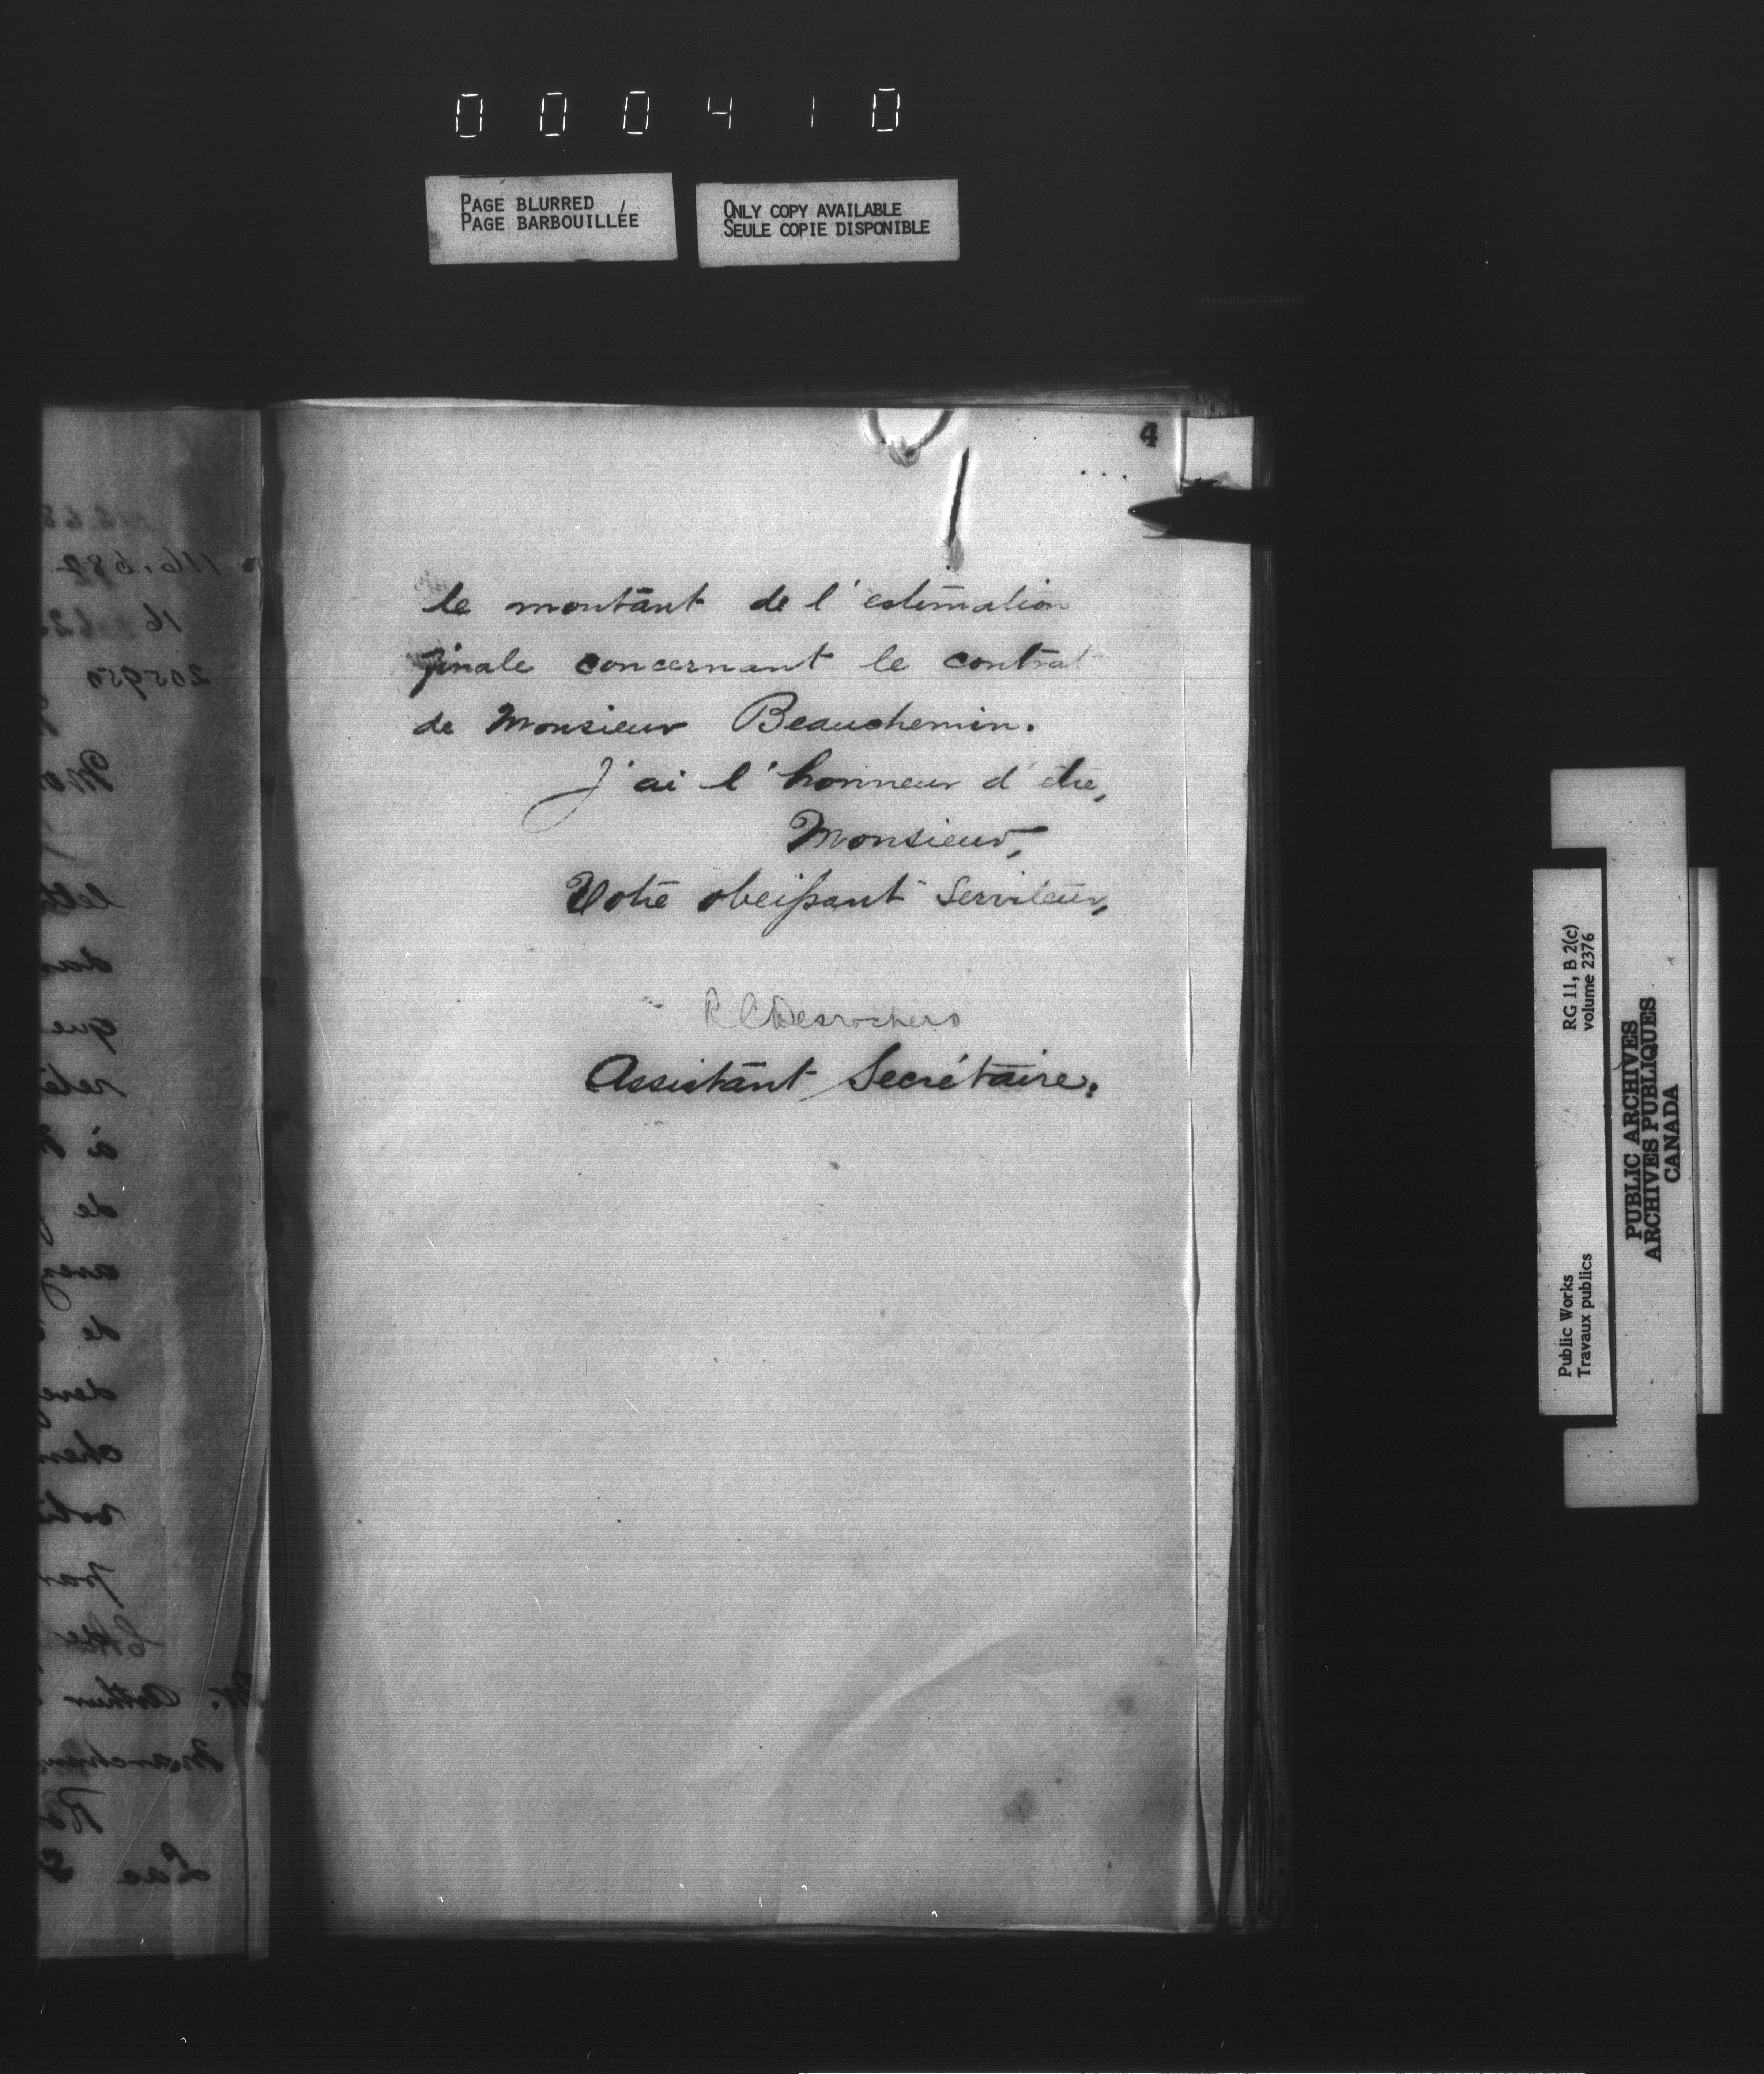 000410
PAGE BLURRED
PAGE BARBOUILLÉE
ONLY COPY AVAILABLE
SEULE COPIE DISPONIBLE
4
le montant de l'estimation
finale concernant le contrat
de Monsieur Beauchemin.
J'ai l'honneur d'être,
Monsieur,
Votre obeissant Serviteur,
R C Desrochers
Assistant Secrétaire.
116.687
205950
que
à
de
avez
de
par
M. Arthur
Lac
RG 11, B 2(c)
volume 2376
Public Works
Travaux publics
PUBLIC ARCHIVES
ARCHIVES PUBLIQUES
CANADA